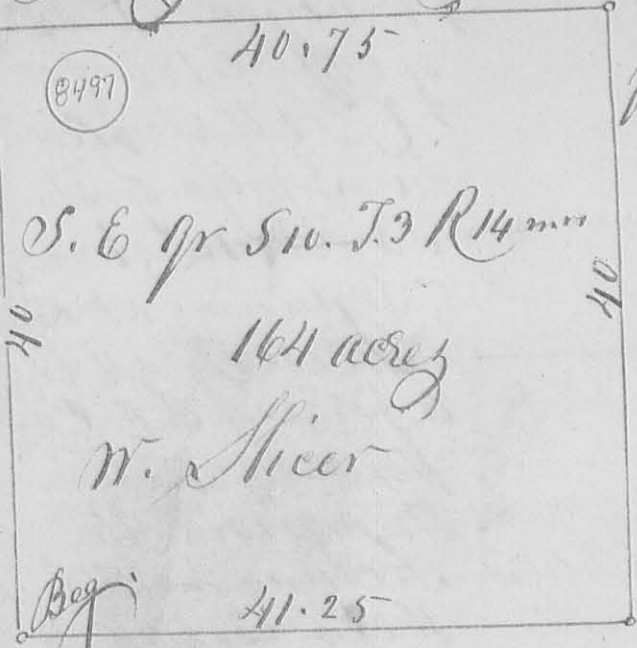 40.75
8497
S. E qr S 10. T. 3 R 14 mm
40
40
164 acres
W. Slicer
Beg
41.25